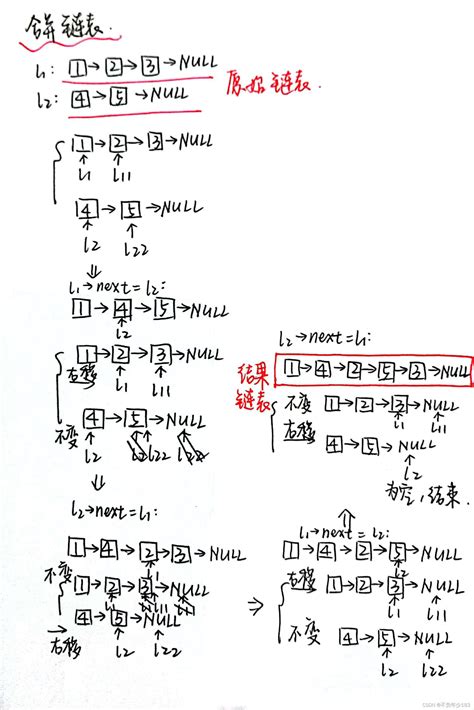 合并链表.
l1: 1→2→3→NULL
l2: 4→5→NULL
原始链表.
1→2→3→NULL
l1 l11
4→5→NULL
l2 l22
⇓
l1→next=l2:
1→4→5→NULL
l2
右移 1→2→3→NULL
l1 l11
不变 4→5→NULL
l2 l22
⇓
l2→next=l1:
1→4→2→3→NULL
l1
不变 1→2→3→NULL
l1 l11
4→5→NULL
右移 l2 l22
⇒
l1→next=l2:
1→4→2→5→NULL
l2
右移 1→2→3→NULL
l1 l11
不变 4→5→NULL
l2 l22
⇑
l2→next=l1:
结果链表
1→4→2→5→3→NULL
不变 1→2→3→NULL
l1 l11
右移 4→5→NULL
l2
为空,结束.